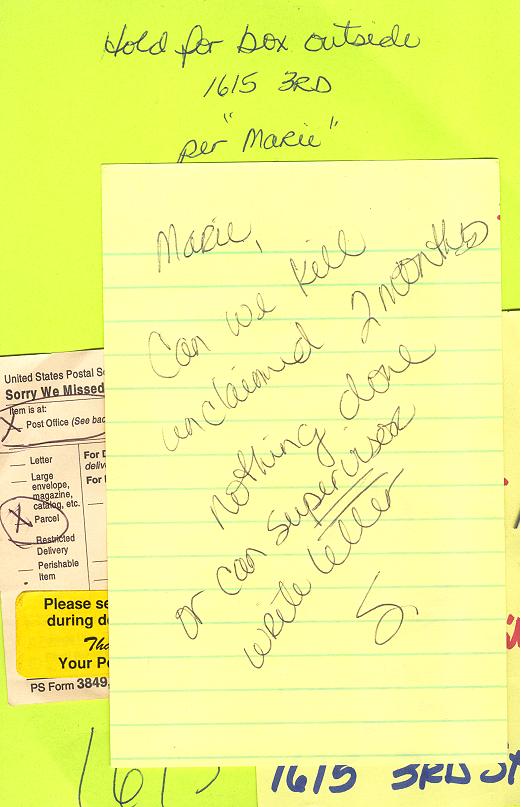 Hold for box outside
1615 3RD
per "Marie"
Marie,
Can we kill
unclaimed 2 months
nothing done
or can supervisor
write letter
S.
United States Postal S
Sorry We Missed
Item is at:
X Post Office (See bac
Letter
Large
envelope,
magazine,
catalog, etc.
X Parcel
Restricted
Delivery
Perishable
Item
For D
deliv
For
Please se
during d
Tha
Your Po
PS Form 3849,
1615
1615 3RD St